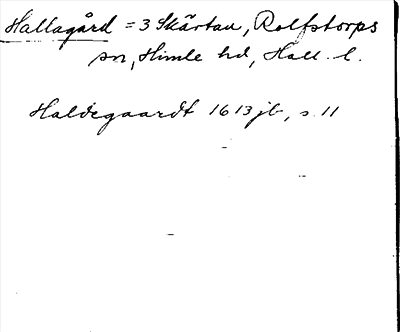 Hallagård = 3 Skärtan, Rolfstorps
sn, Himle hd, Hall. l.
Haldegaardt 1613 jb, s. 11